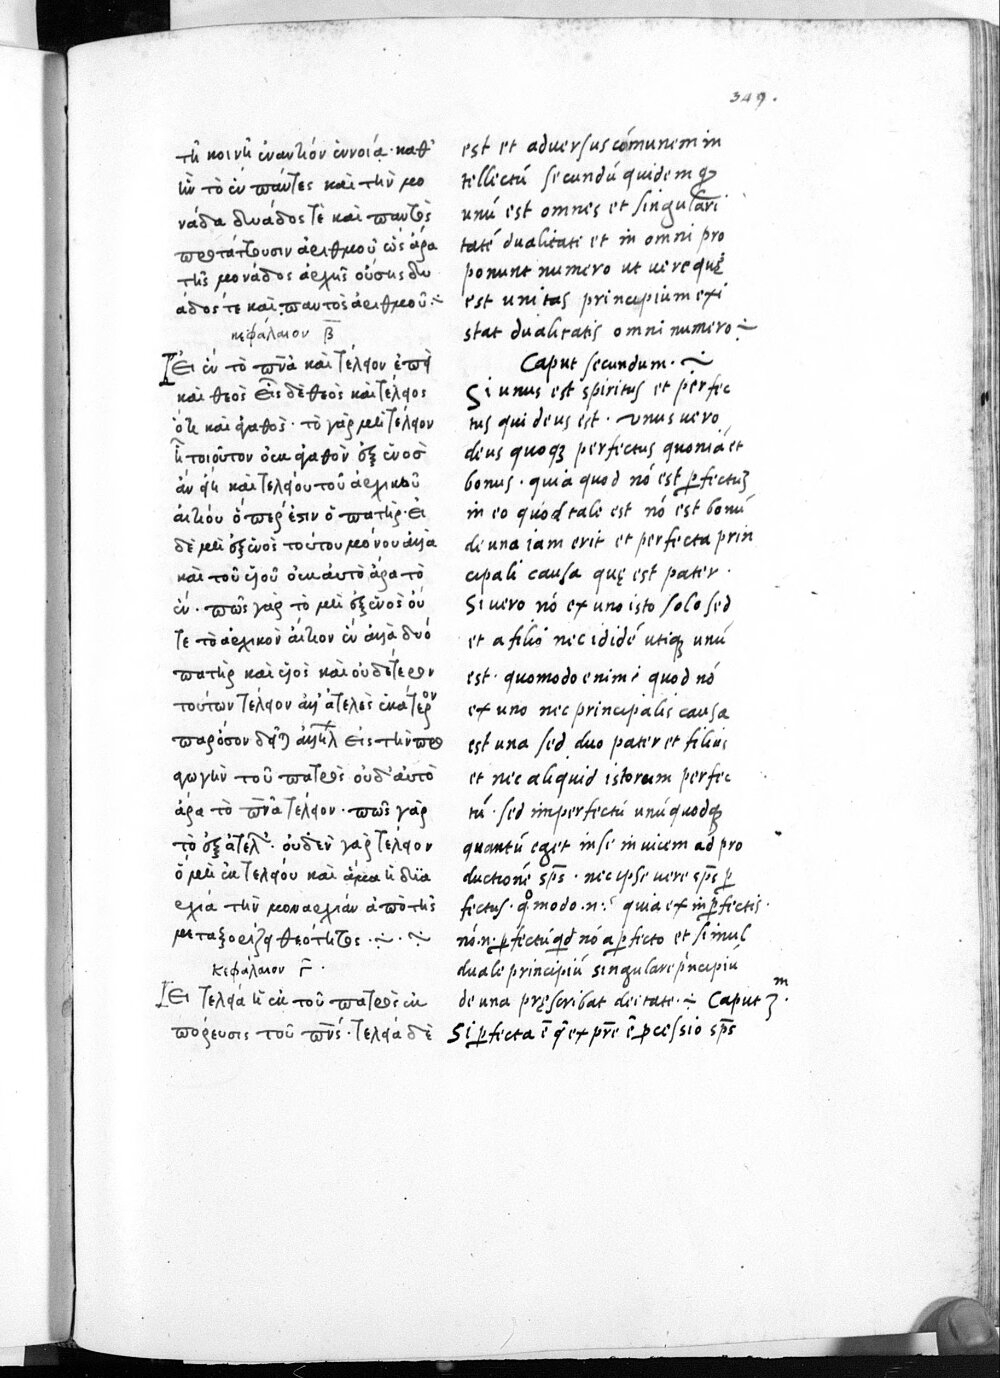 349.
τῆ κοινῆ ἐναντίον ἐννοίᾳ· καθ'
ἣν τὸ ἓν πάντες καὶ τὴν μο
νάδα δυάδος τὲ καὶ παντὸς
προτάττουσιν ἀριθμοῦ ὡς ἄρα
τῆς μονάδος ἀρχῆς οὔσης δυ
άδος τε καὶ παντὸς ἀριθμοῦ:
κεφάλαιον β̅
Εἰ ἓν τὸ π̅ν̅α καὶ τέλειον ἐπεὶ
καὶ θεὸς εἷς δὲ θεὸς καὶ τέλειος
ὅτι καὶ ἀγαθὸς· τὸ γὰρ μὴ τέλειον
ἧ τοιοῦτον οὐκ ἀγαθὸν ἐξ ἑνὸσ
ἂν εἴη καὶ τελείου τοῦ ἀρχικοῦ
αἰτίου ὅπερ ἐστιν ὁ πατήρ· εἰ
δὲ μὴ ἐξ ἑνὸς τούτου μόνου ἀλλὰ
καὶ τοῦ υἱοῦ οὐκ αὐτὸ ἄρα τὸ
ἕν· πῶς γὰρ τὸ μὴ ἐξ ἑνὸς οὔ
τε τὸ ἀρχικὸν αἴτιον ἓν ἀλλὰ δυό
πατὴρ καὶ υἱὸς καὶ οὐδέτερον
τούτων τέλειον ἀλλ' ἀτελὲς ἑκάτερον
παρόσον δεῖται ἀλλήλ εἰς τὴν προ
αγωγὴν τοῦ πατρὸς οὐδ' αὐτὸ
ἄρα τὸ π̅ν̅α τέλειον· πῶς γὰρ
τὸ ἐξ ἀτελ· οὐδὲν γὰρ τέλειον
ὃ μὴ ἐκ τελείου καὶ ἅμα ἡ διϊα
ρχία τὴν μοναρχίαν ἀπὸ τῆς
μεταξορίζει θεότητος·
κεφάλαιον γ̅·
Εἰ τελεία ἡ ἐκ τοῦ πατρὸς ἐκ
πόρευσις τοῦ π̅ν̅ς· τελεία δὲ
est et adversus cómunem in
tellectú secundú quidem q
unú est omnes et singulari
taté dualitati et in omni pro
ponunt numero ut vere quę
est unitas principium exi
stat dualitatis omni numero
Caput secundum·
Si unus est spiritus et perfec
tus qui deus est· unus vero
deus quoqꝫ perfectus quoniá et
bonus· quia quod nó est ꝑfectuꝫ
in eo quod tale est nó est bonú
de una iam erit et perfecta prin
cipali causa quę est pater·
Si vero nó ex uno isto solo sed
et a filio nec idideé utiqꝫ unú
est· quomodo enim· quod nó
ex uno nec principalis causa
est una sed duo pater et filius
et nec aliquid istorum perfec
tú· sed imperfectú unúquodqꝫ
quantú eget in se in vicem ad pro
ductioné sp̅s· nec ipse vere sp̅s ꝑ
fectus· qͦmodo .n. quia ex inꝑfectis·
nó .n. ꝑfectú qd nó a ꝑfecto et simul
duale principiú singulare pncipiú
de una pręscribat deitate· Caput 3ᵐ·
Si ꝑfecta ē q̄ ex pr̄e ē ꝑcessio sp̅s